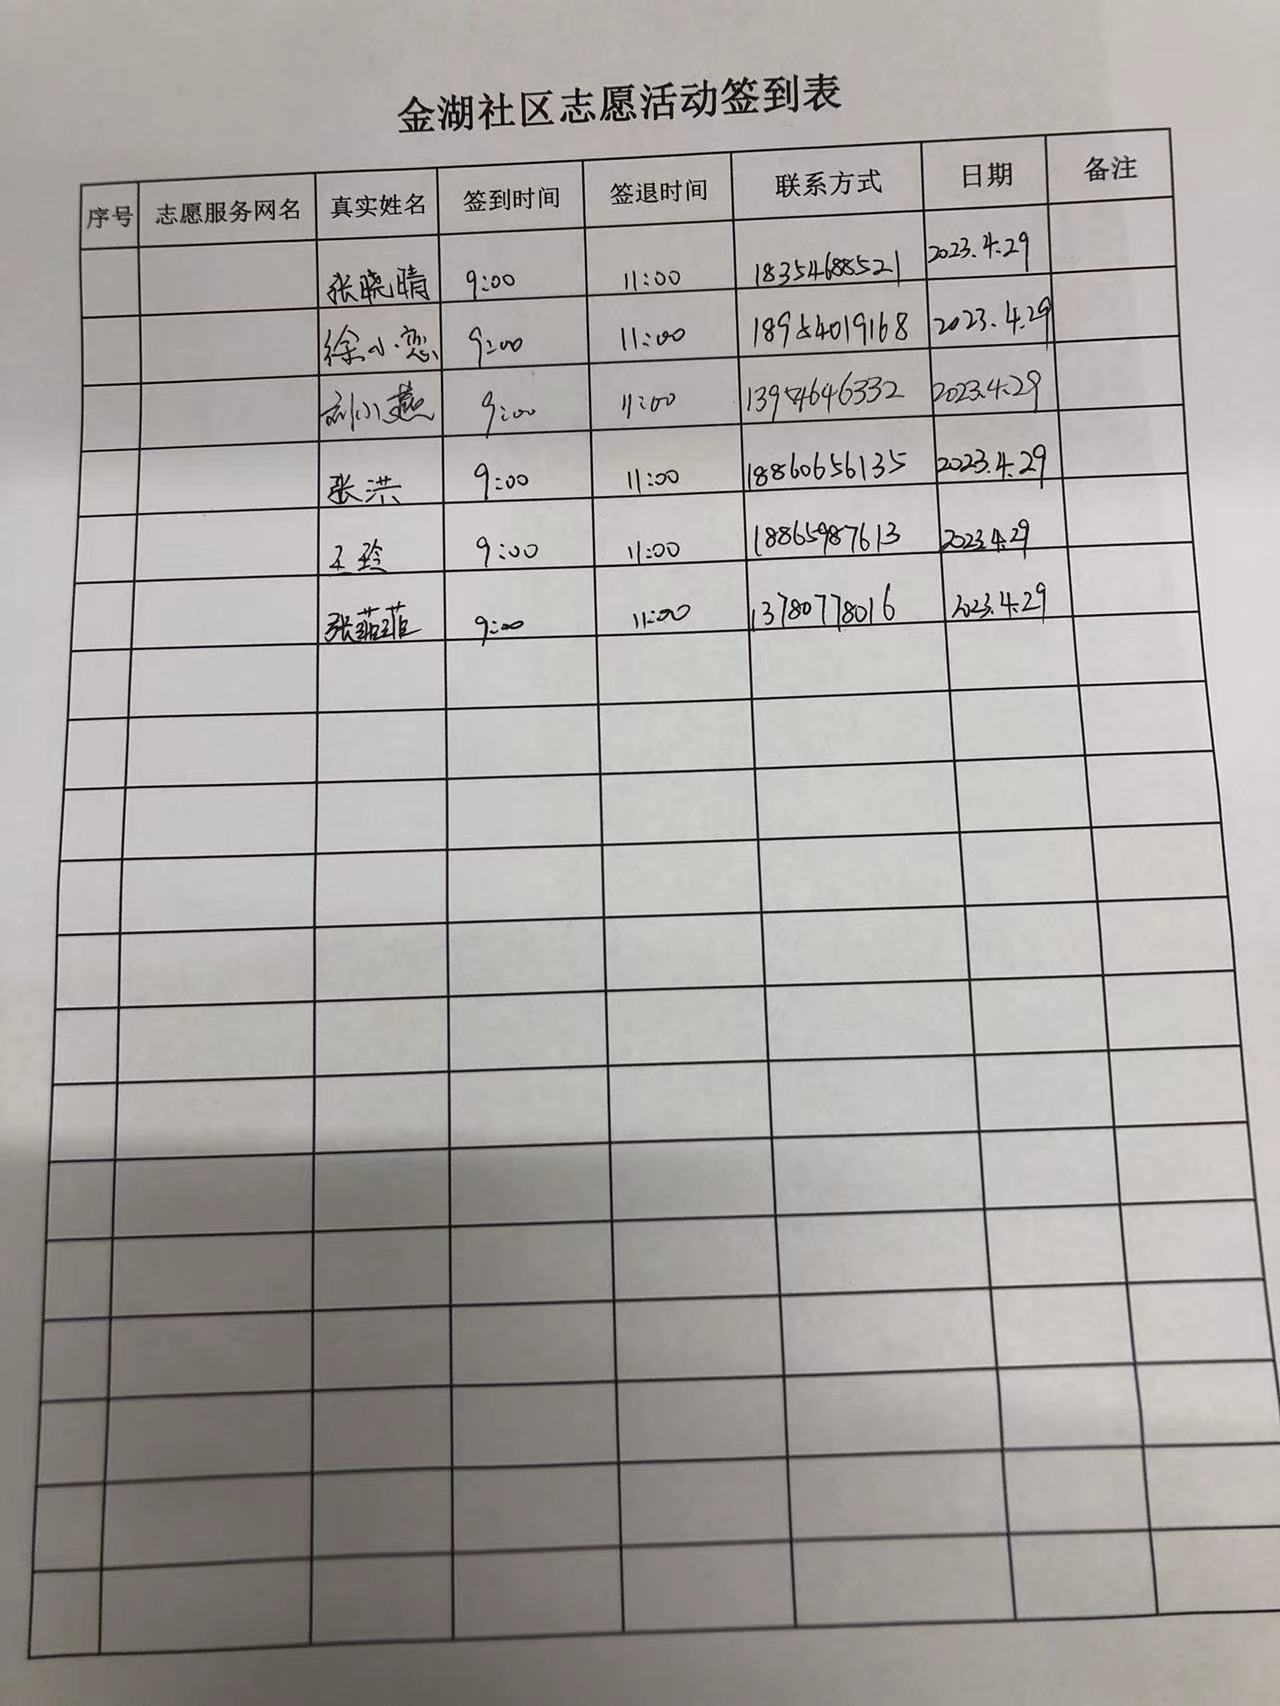 金湖社区志愿活动签到表
序号 志愿服务网名 真实姓名 签到时间 签退时间 联系方式 日期 备注
张晓晴 9:00 11:00 18354688521 2023.4.29
徐小恋 9:00 11:00 18954019168 2023.4.29
刘小燕 9:00 11:00 13954646332 2023.4.29
张洪 9:00 11:00 18860656135 2023.4.29
王玲 9:00 11:00 18865987613 2023.4.29
张菲菲 9:00 11:00 13780778016 2023.4.29